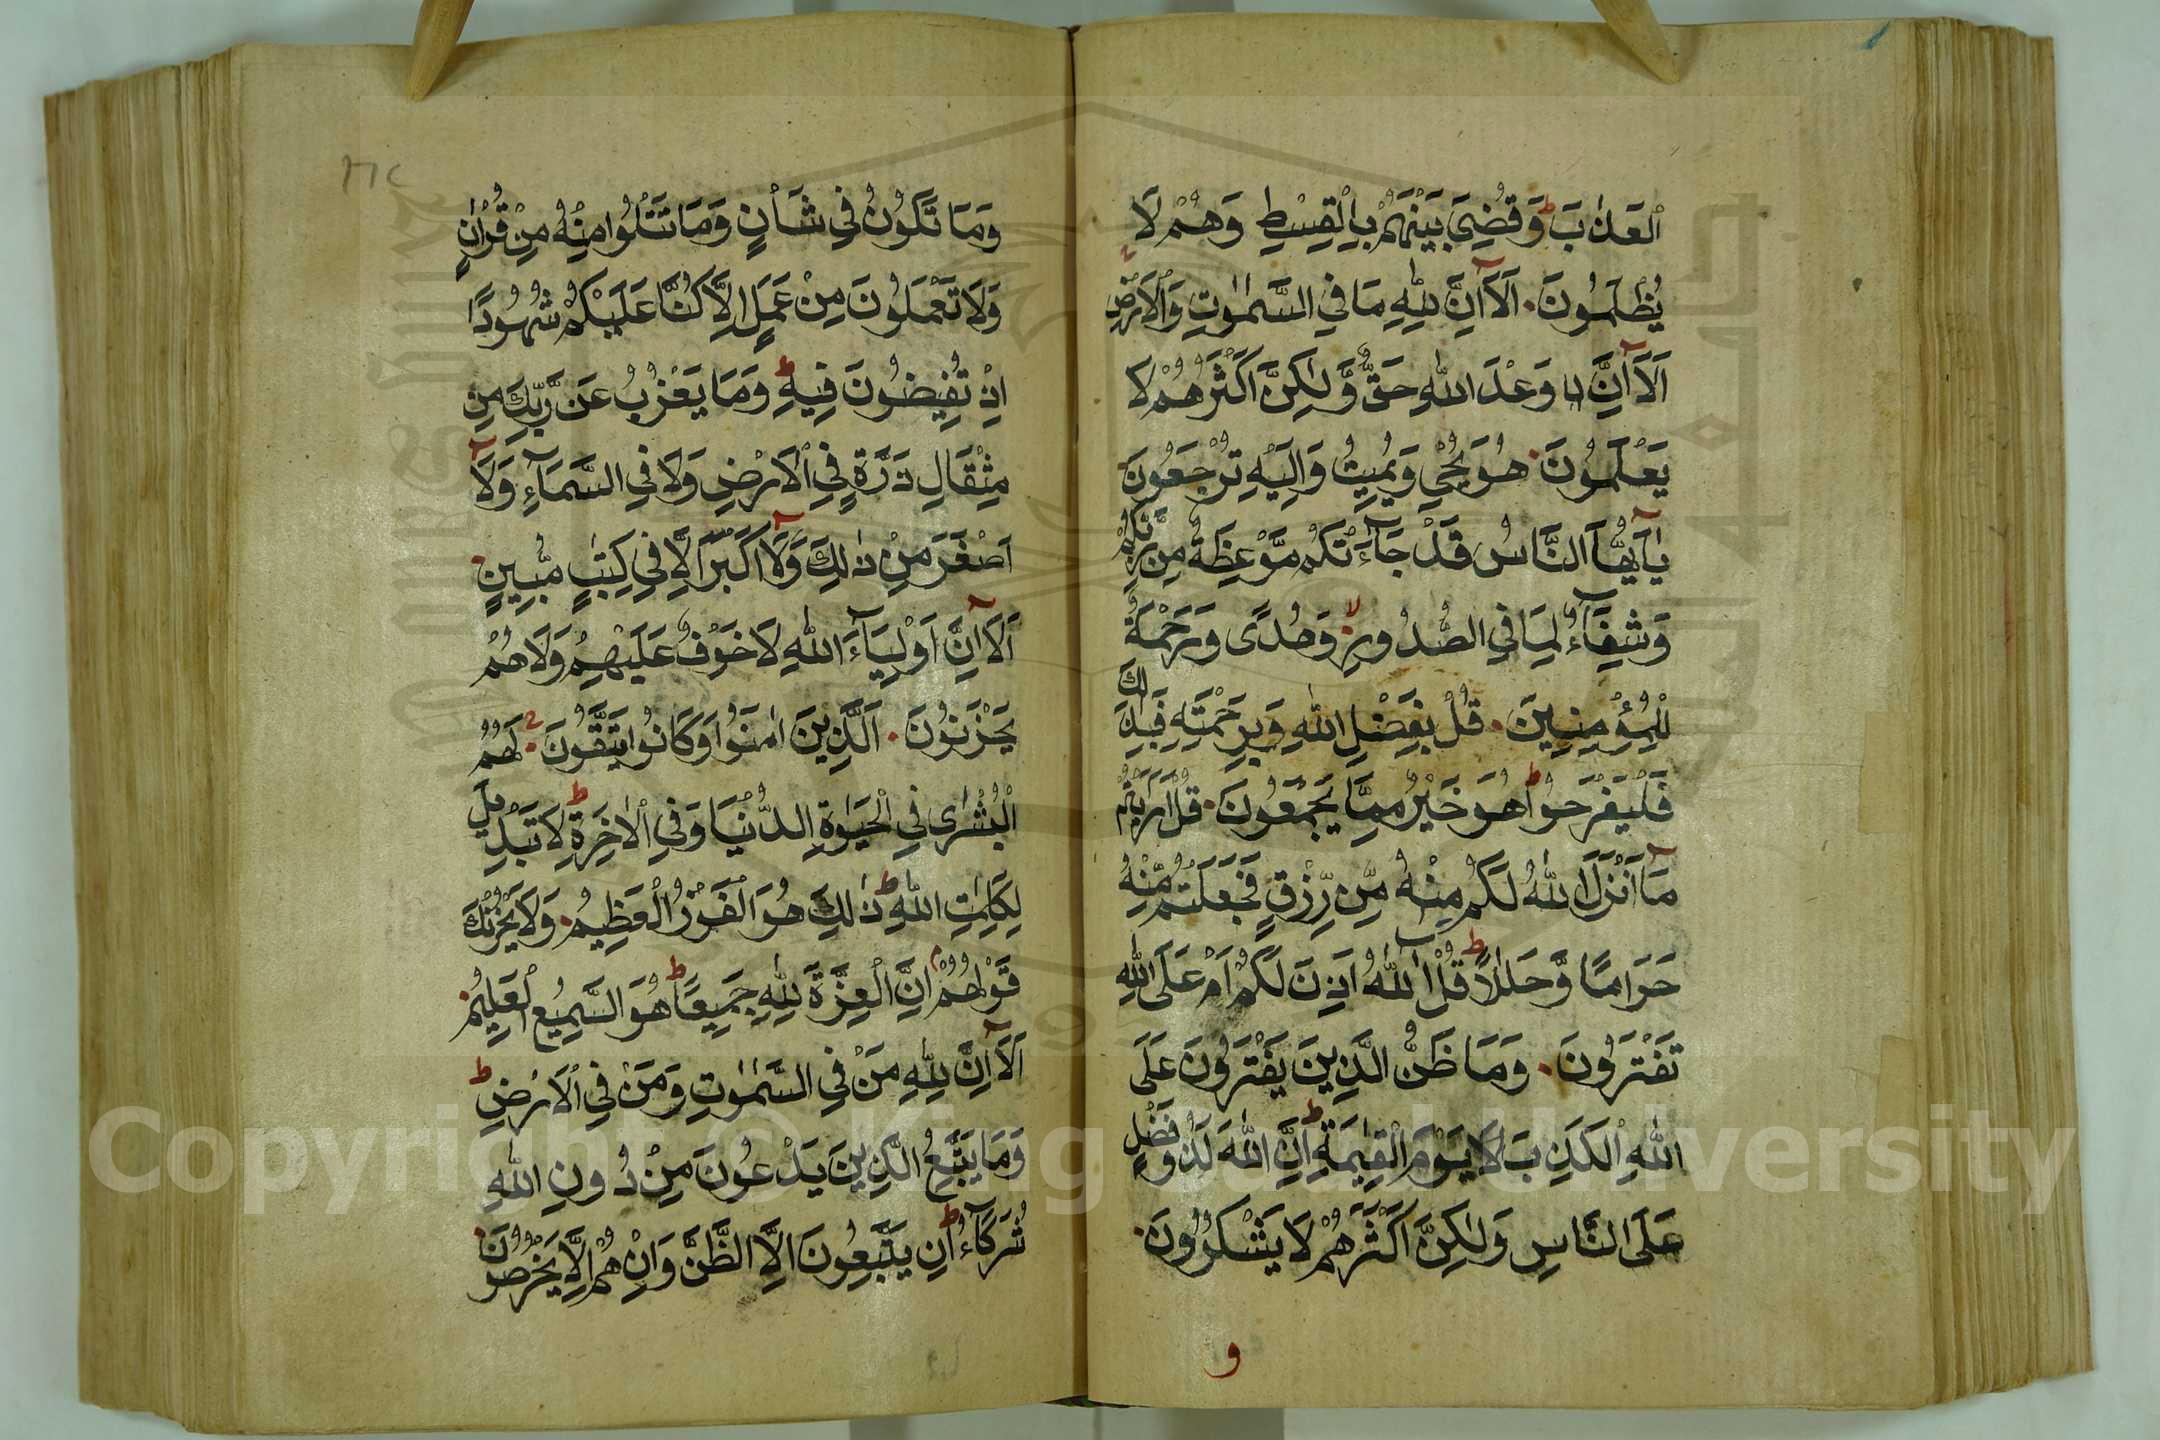 ٱلْعَذَابَ وَقُضِيَ بَيْنَهُمْ بِالْقِسْطِ وَهُمْ لَا
يُظْلَمُونَ اَلَآ اِنَّ لِلّٰهِ مَا فِي السَّمٰوٰتِ وَالْاَرْضِ
اَلَآ اِنَّ وَعْدَ اللّٰهِ حَقٌّ وَّلٰكِنَّ اَكْثَرَهُمْ لَا
يَعْلَمُونَ هُوَ يُحْيِ وَيُمِيتُ وَاِلَيْهِ تُرْجَعُونَ
يٰٓاَيُّهَا النَّاسُ قَدْ جَآءَتْكُمْ مَّوْعِظَةٌ مِنْ رَّبِّكُمْ
وَشِفَآءٌ لِمَا فِي الصُّدُورِ وَهُدًى وَرَحْمَةٌ
لِلْمُؤْمِنِينَ قُلْ بِفَضْلِ اللّٰهِ وَبِرَحْمَتِهِ فَبِذٰلِكَ
فَلْيَفْرَحُوا هُوَ خَيْرٌ مِمَّا يَجْمَعُونَ قُلْ اَرَءَيْتُمْ
مَآ اَنْزَلَ اللّٰهُ لَكُمْ مِنْهُ مِّنْ رِّزْقٍ فَجَعَلْتُمْ مِّنْهُ
حَرَامًا وَّحَلٰلًا قُلْ آٰللّٰهُ اَذِنَ لَكُمْ اَمْ عَلَى اللّٰهِ
تَفْتَرُونَ وَمَا ظَنُّ الَّذِينَ يَفْتَرُونَ عَلَى
اللّٰهِ الْكَذِبَ لَا يَوْمَ الْقِيٰمَةِ اِنَّ اللّٰهَ لَذُو فَضْلٍ
عَلَى النَّاسِ وَلٰكِنَّ اَكْثَرَهُمْ لَا يَشْكُرُونَ
و
وَمَا تَكُونُ فِي شَاْنٍ وَمَا تَتْلُوا مِنْهُ مِنْ قُرْاٰنٍ
وَلَا تَعْمَلُونَ مِنْ عَمَلٍ اِلَّا كُنَّا عَلَيْكُمْ شُهُودًا
اِذْ تُفِيضُونَ فِيهِ وَمَا يَعْزُبُ عَنْ رَّبِّكَ مِنْ
مِثْقَالِ ذَرَّةٍ فِي الْاَرْضِ وَلَا فِي السَّمَآءِ وَلَآ
اَصْغَرَ مِنْ ذٰلِكَ وَلَآ اَكْبَرَ اِلَّا فِي كِتٰبٍ مُّبِينٍ
اَلَآ اِنَّ اَوْلِيَآءَ اللّٰهِ لَا خَوْفٌ عَلَيْهِمْ وَلَا هُمْ
يَحْزَنُونَ اَلَّذِينَ اٰمَنُوا وَكَانُوا يَتَّقُونَ لَهُمُ
الْبُشْرٰى فِي الْحَيٰوةِ الدُّنْيَا وَفِي الْاٰخِرَةِ لَا تَبْدِيلَ
لِكَلِمٰتِ اللّٰهِ ذٰلِكَ هُوَ الْفَوْزُ الْعَظِيمُ وَلَا يَحْزُنْكَ
قَوْلُهُمْ اِنَّ الْعِزَّةَ لِلّٰهِ جَمِيعًا هُوَ السَّمِيعُ الْعَلِيمُ
اَلَآ اِنَّ لِلّٰهِ مَنْ فِي السَّمٰوٰتِ وَمَنْ فِي الْاَرْضِ
وَمَا يَتَّبِعُ الَّذِينَ يَدْعُونَ مِنْ دُونِ اللّٰهِ
شُرَكَآءَ اِنْ يَتَّبِعُونَ اِلَّا الظَّنَّ وَاِنْ هُمْ اِلَّا يَخْرُصُونَ
Copyright © King Saud University